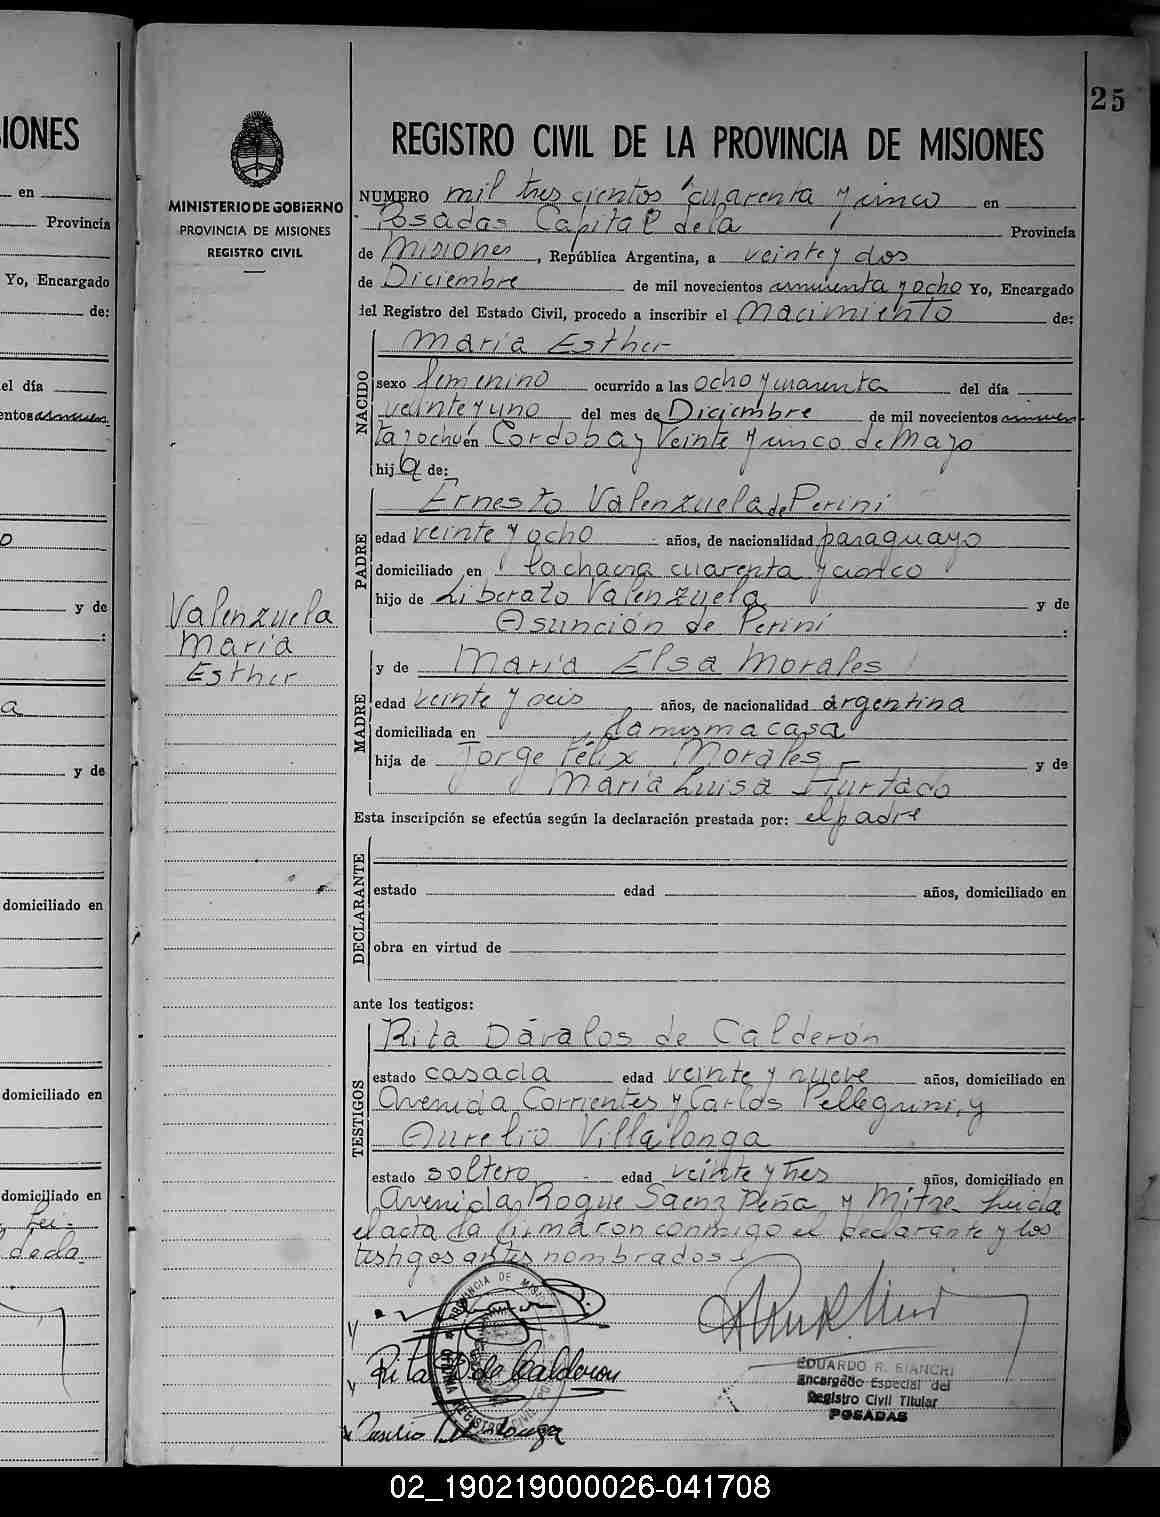 IONES
en
Provincia
Yo, Encargado
de:
el día
entos
o
y de
:
a
y de
domiciliado en
domiciliado en
domiciliado en
Lei-
dada
25
MINISTERIO DE GOBIERNO
PROVINCIA DE MISIONES
REGISTRO CIVIL
Valenzuela
María
Esther
REGISTRO CIVIL DE LA PROVINCIA DE MISIONES
NUMERO mil trescientos cuarenta y cinco en
Posadas Capital de la Provincia
de Misiones, República Argentina, a veinte y dos
de Diciembre de mil novecientos cincuenta y ocho Yo, Encargado
del Registro del Estado Civil, procedo a inscribir el Nacimiento de:
NACIDO
María Esther
sexo femenino ocurrido a las ocho y cuarenta del día
veinte y uno del mes de Diciembre de mil novecientos cincuen-
ta y ocho en Cordoba y Veinte y cinco de Mayo
hija de:
PADRE
Ernesto Valenzuela de Perini
edad veinte y ocho años, de nacionalidad paraguayo
domiciliado en la chacra cuarenta y cinco
hijo de Liberato Valenzuela y de
Asunción de Perini :
MADRE
y de María Elsa Morales
edad veinte y seis años, de nacionalidad argentina
domiciliada en la misma casa
hija de Jorge Félix Morales y de
María Luisa Hurtado
Esta inscripción se efectúa según la declaración prestada por: el padre
DECLARANTE
estado edad años, domiciliado en
obra en virtud de
ante los testigos:
TESTIGOS
Rita Dávalos de Calderón
estado casada edad veinte y nueve años, domiciliado en
Avenida Corrientes y Carlos Pellegrini, y
Aurelio Villalonga
estado soltero edad veinte y tres años, domiciliado en
Avenida Roque Saenz Peña y Mitre. Leida
el acta la firmaron conmigo el declarante y los
testigos antes nombrados.
PROVINCIA DE MISIONES
Rita D de Calderon
EDUARDO R. BIANCHI
Encargado Especial del
Registro Civil Titular
POSADAS
02_190219000026-041708